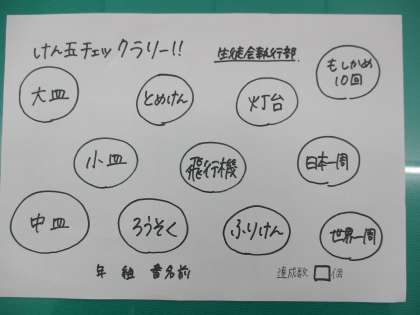 けん玉チェックラリー!!
生徒会執行部
もしかめ
10回
大皿
とめけん
灯台
小皿
飛行機
日本一周
中皿
ろうそく
ふりけん
世界一周
年 組 番名前
達成数 個